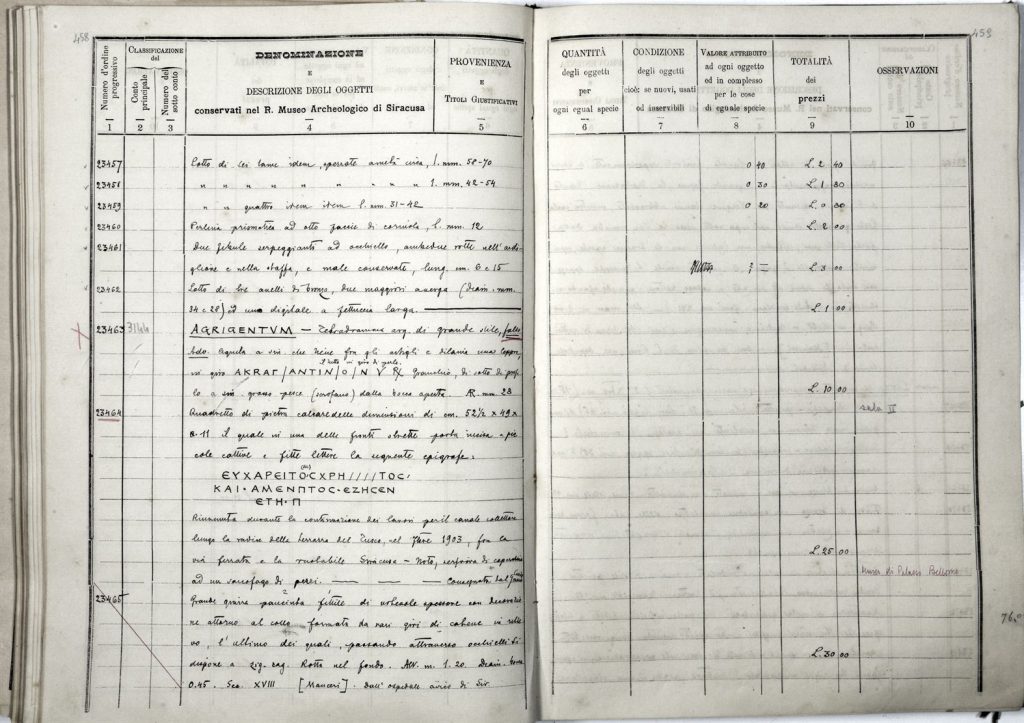 458
Numero d'ordine progressivo
CLASSIFICAZIONE del
Conto principale
Numero del sotto conto
DENOMINAZIONE
E
DESCRIZIONE DEGLI OGGETTI
conservati nel R. Museo Archeologico di Siracusa
PROVENIENZA
E
TITOLI GIUSTIFICATIVI
1 2 3 4 5
23457 Lotto di sei lame idem, spezzate a metà circa, l. mm. 58-70
23458 " " " " " " " " l. mm. 42-54
23459 " " quattro item item l. mm. 31-42
23460 Perlina prismatica ad otto faccie di corniola, l. mm. 12
23461 Due fibule serpeggianti ad occhiello, ambedue rotte nell'ardi-
glione e nella staffa, e male conservate, lung. cm. 6 e 15
23462 Lotto di tre anelli di bronzo, due maggiori a verga (Diam. mm.
34 e 28) ed uno digitale a fettuccia larga.
23463 3144 AGRIGENTVM — Tetradramma arg. di grande stile, falso
Ado. Aquila a sin. che tiene fra gli artigli e dilania una lepre,
il tutto in giro di perle.
in giro AKRAΓ/ANTIN/O/N V R/ Granchio, di sotto di
lo a sin. grosso pesce (scrofano) dalla bocca aperta. AR. mm. 28
23464 Quadretto di pietra calcare delle dimensioni di cm. 52½ x 49 x
0.11 il quale in una delle fronti strette porta incisa a pic
cole cattive e fitte lettere la seguente epigrafe:
ΕΥΧΑΡΕΙΤΟ·CΧΡΗ////ΤΟC·
ΚΑΙ·ΑΜΕΝΠΤΟC·ΕΖΗCΕΝ
ΕΤΗ·Π
Rinvenuta durante la continuazione dei lavori per il canale collettore
lungo la radice della terrazza del Fusco, nel 1903, fra la
via ferrata e la ruotabile Siracusa - Noto, serviva di coperchio
ad un sarcofago di pezzi. — — — Consegnata dal
23465 Grande fittile di notevole spessore con decorazio
ne attorno al collo formata da vari giri di catene in rilie
vo, l'ultimo dei quali, passando attraverso occhielli si
dispone a zig-zag. Rotto nel fondo. Alt. m. 1.20. Diam. bocca
0.45. Sec. XVIII [Mauceri]. Dall'ospedale civico di Sir.
459
QUANTITÀ
degli oggetti
per
ogni egual specie
CONDIZIONE
degli oggetti
cioè: se nuovi, usati
od inservibili
VALORE ATTRIBUITO
ad ogni oggetto
ed in complesso
per le cose
di eguale specie
TOTALITÀ
dei
prezzi
OSSERVAZIONI
6 7 8 9 10
0 40 L. 2 40
0 30 L. 1 80
0 20 L. 0 80
L. 2 00
L. 3 00
L. 1 00
L. 10 00
sala II
L. 25 00
Museo di Palazzo Bellomo
L. 30 00